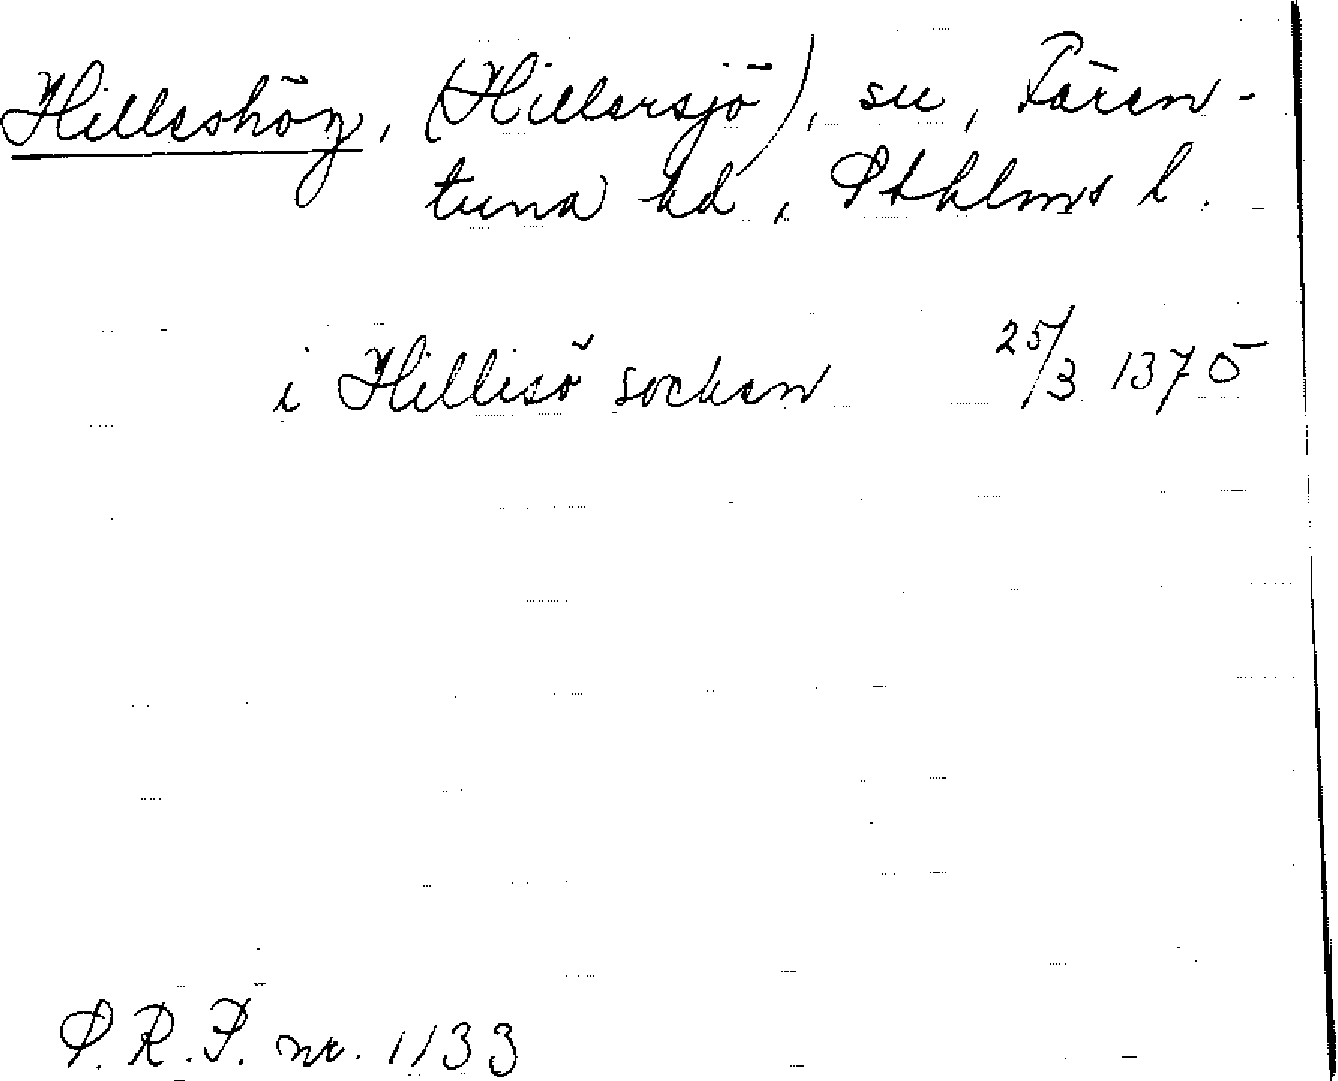 Hilleshög, (Hillersjö), sn, Fären-
tuna hd, Sthlms l.
i Hillisö socken 25/3 1375
S.R.P. nr. 1133